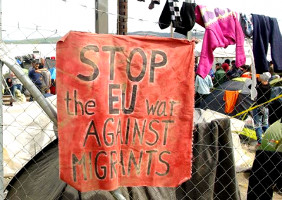 STOP
the EU war
AGAINST
MIGRANTS